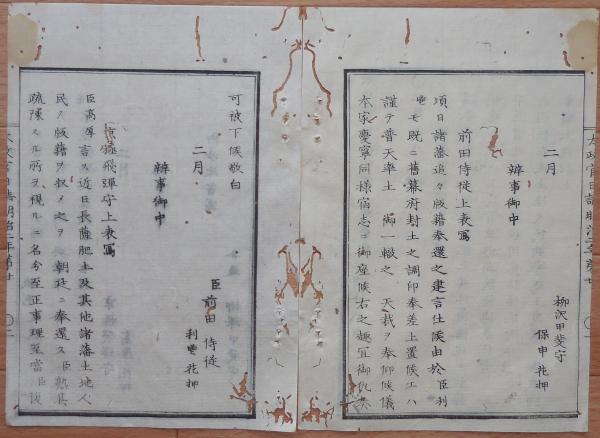 二月
柳沢甲斐守
保申花押
辨事御中
前田侍従上表寫
項日諸藩追々版籍奉還之建言仕候由於臣利
鬯モ既ニ舊幕府封土之調印奉差上置候エハ
謹テ普天率土 御一轍之 天裁ヲ奉仰候儀
本家慶寧同様宿志ニ御座候右之趣宜御執奏
可被下候敬白
二月
臣前田侍従
利鬯花押
辨事御中
飛騨守上表寫
臣高 言ス近日長薩肥土及其他諸藩土地人
民ノ版籍ヲ収メ之ヲ 朝廷ニ奉還ス臣熟其
疏陳スル所ヲ視ルニ名分至正事理至當臣
太政官日誌明治二年第廿
太政官日誌明治二年第廿